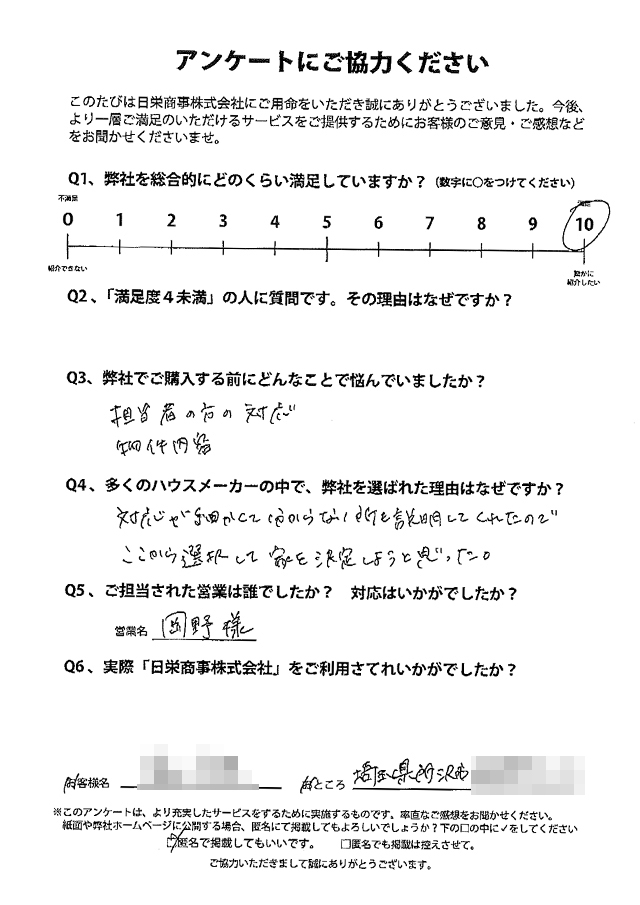 アンケートにご協力ください
このたびは日栄商事株式会社にご用命をいただき誠にありがとうございました。今後、
より一層ご満足のいただけるサービスをご提供するためにお客様のご意見・ご感想など
をお聞かせくださいませ。
Q1、弊社を総合的にどのくらい満足していますか？（数字に○をつけてください）
不満足
0 1 2 3 4 5 6 7 8 9 10
紹介できない
確かに
紹介したい
Q2、「満足度４未満」の人に質問です。その理由はなぜですか？
Q3、弊社でご購入する前にどんなことで悩んでいましたか？
担当者の方の対応
物件内容
Q4、多くのハウスメーカーの中で、弊社を選ばれた理由はなぜですか？
対応が細かくて分からない所を説明してくれたので
ここから選択して家を決定しようと思った。
Q5、ご担当された営業は誰でしたか？　対応はいかがでしたか？
営業名 岡野様
Q6、実際「日栄商事株式会社」をご利用さてれいかがでしたか？
お客様名 おところ 埼玉県所沢市
※このアンケートは、より充実したサービスをするために実施するものです。率直なご感想をお聞かせください。
紙面や弊社ホームページに公開する場合、匿名にて掲載してもよろしいでしょうか？下の□の中に✓をしてください
☑匿名で掲載してもいいです。 □匿名でも掲載は控えさせて。
ご協力いただきまして誠にありがとうございます。